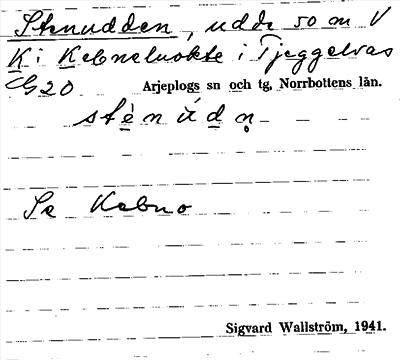 Stenudden, udde 50 m V
K i Kebneluokte i Tjeggelvas
G20 Arjeplogs sn och tg, Norrbottens län.
stènúdn̥
Se Kebno
Sigvard Wallström, 1941.